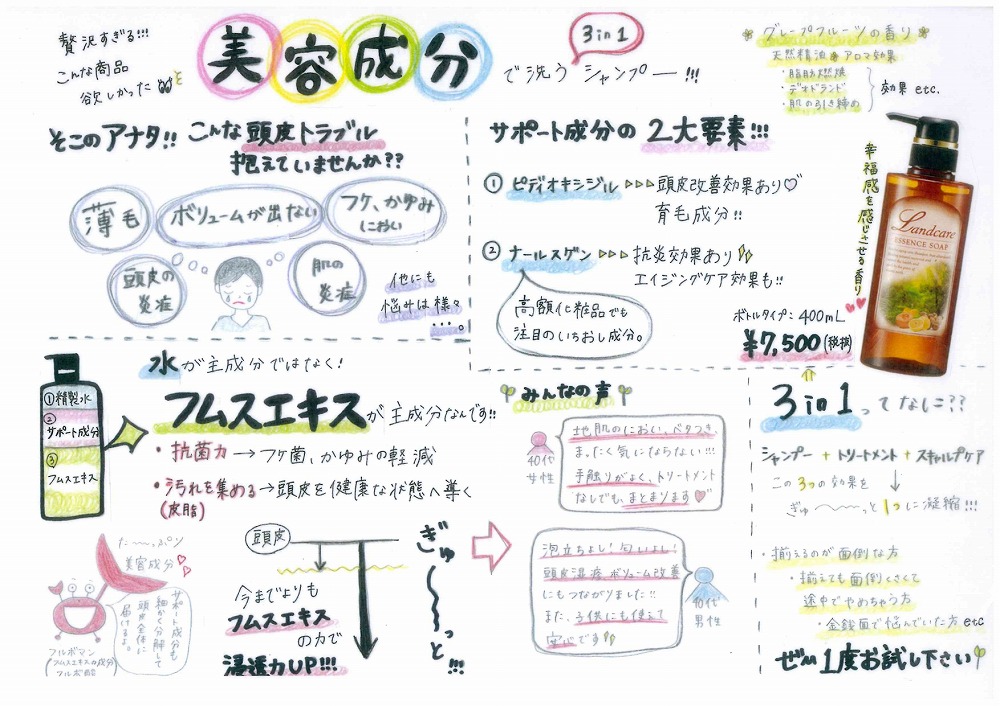 贅沢すぎる!!!
こんな商品
欲しかった
美容成分
で洗う シャンプー!!!
3in1
グレープフルーツの香り
天然精油 アロマ効果
・脂肪燃焼
・デオドラント
・肌の引き締め
効果 etc.
そこのアナタ!! こんな頭皮トラブル
抱えていませんか??
薄毛
ボリュームが出ない
フケ、かゆみ
におい
頭皮の
炎症
肌の
炎症
他にも
悩みは様々
・・・。
サポート成分の 2大要素!!!
① ピディオキシジル ▷▷▷ 頭皮改善効果あり♡
育毛成分!!
② ナールスゲン ▷▷▷ 抗炎効果あり
エイジングケア効果も!!
高額化粧品でも
注目のいちおし成分。
幸福感を感じさせる香り
Landcare
ESSENCE SOAP
ボトルタイプ: 400mL
¥7,500(税抜)
水が主成分ではなく!
フムスエキスが主成分なんです!!
①精製水
②
サポート成分
③
フムスエキス
・抗菌力→フケ菌、かゆみの軽減
・汚れを集める→頭皮を健康な状態へ導く
(皮脂)
た〜っぷり
美容成分
サポート成分も
細かく分解して
頭皮全体に
届けるよ。
フルボマン
フムスエキスの成分
フルボ酸
頭皮
今までよりも
フムスエキス
の力で
浸透力UP!!!
ぎゅ〜〜っと!!!
みんなの声
40代
女性
地肌のにおい、ベタつき
まったく気にならない!!!
手触りがよく、トリートメント
なしでも、まとまります♡
泡立ちよし!匂いよし!
頭皮湿疹、ボリューム改善
にもつながりました!!
また、子供にも使えて
安心です
40代
男性
3in1 ってなに??
シャンプー + トリートメント + スキャルプケア
この3つの効果を
ぎゅ〜〜っと1つに凝縮!!!
・揃えるのが面倒な方
・揃えても面倒くさくて
途中でやめちゃう方
・金銭面で悩んでいた方 etc
ぜひ1度お試し下さい